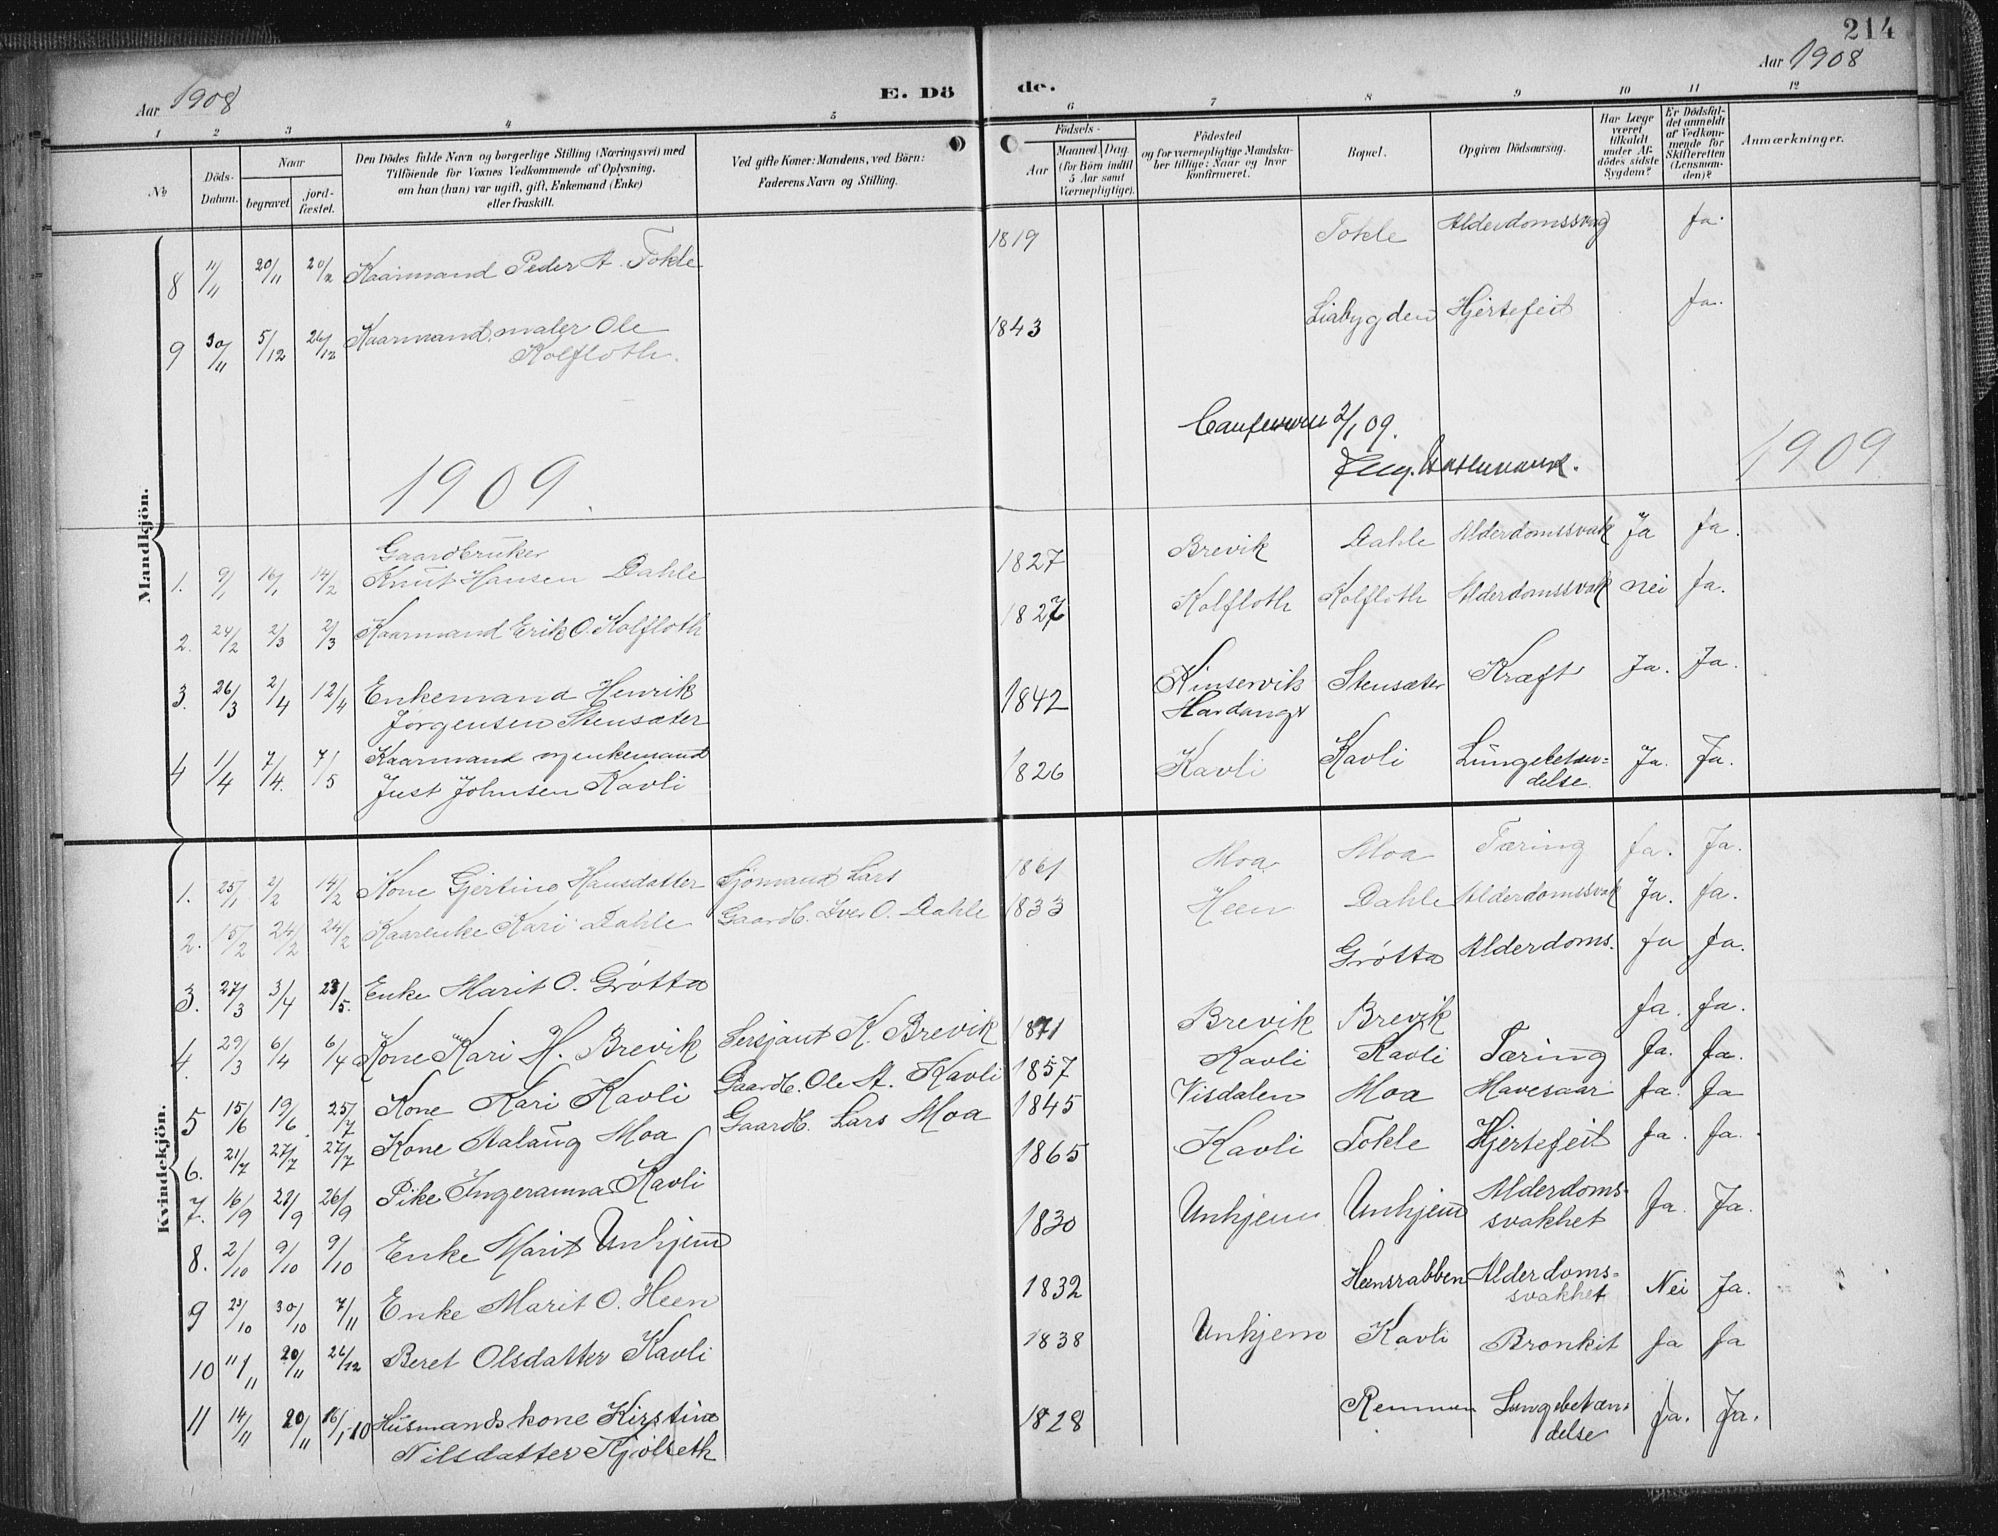 214
Aar 1908
E. Dö de.
Aar 1908
1 2 3 4 5 6 7 8 9 10 11 12
No
Döds-Datum.
Naar
begravet.
jord-fæstet.
Den Dödes fulde Navn og borgerlige Stilling (Næringsvei) med
Tilföiende for Voxnes Vedkommende af Oplysning,
om han (hun) var ugift, gift, Enkemand (Enke)
eller fraskilt.
Ved gifte Koner: Mandens, ved Börn:
Faderens Navn og Stilling.
Födsels-
Aar
Maaned Dag.
(for Börn indtil
5 Aar samt
Værnepligtige).
Födested
og for værnepligtige Mandska-
ber tillige: Naar og hvor
konfirmeret.
Bopæl.
Opgiven Dödsaarsag.
Har Læge
været
tilkaldt
under Af-
dödes sidste
Sygdom?
Er Dödsfal-
det anmeldt
af Vedkom-
mende for
Skifteretten
(Lensman-
den)?
Anmærkninger.
Mandkjön.
8 11/11 20/11 20/12 Kaarmand Peder A. Tokle 1819 Tokle Alderdomssvag Ja.
9 30/11 5/12 26/12 Kaarmand, maler Ole 1843 Liabygden Hjertefeil Ja.
Kolfloth.
2/1 09.
1909. 1909
Gaardbruker
1. 9/1 16/1 14/2 Knut Hansen Dahle 1827 Brevik Dahle Alderdomssvak Ja Ja.
2. 24/2 2/3 2/3 Kaarmand Erik O. Kolfloth 1827 Kolfloth Kolfloth Alderdomssvak nei Ja.
3. 26/3 2/4 12/4 Enkemand Henrik 1842 Kinservik Stensæter Kræft Ja. Ja.
Jørgensen Stensæter Hardanger
4 1/4 7/4. 7/5 Kaarmand og enkemand 1826 Kavli Kavli Lungebetæn- Ja. Ja.
Just Johnsen Kavli delse.
Kvindekjön.
1. 25/1 2/2 14/2 Kone Gjertine Hansdatter Sjömand Lars 1861 Moa Moa Tæring Ja. Ja.
2. 15/2 24/2 24/2 Kaarenke Kari Dahle Gaardb. Iver O. Dahle 1833 Heen Dahle Alderdomssvak Ja. Ja.
3. 27/3 3/4 23/5. Enke Marit O. Grötta Grötta Alderdoms. Ja Ja.
4. 29/3 6/4 6/4 Kone Kari H. Brevik Sersjant K. Brevik 1871 Brevik Brevik Ja. Ja.
5 15/6 19/6. 25/7 Kone Kari Kavli Gaardb. Ole A. Kavli 1857 Kavli Kavli Tæring Ja. Ja.
6. 21/7 27/7 27/7 Kone Aalaug Moa Gaardb. Lars Moa 1845 Visdalen Moa Mavesaar Ja. Ja
7. 16/9 29/9 26/9 Pike Ingeranna Kavli 1865 Kavli Tokle Hjertefeil Ja. Ja.
8. 2/10 9/10 9/10 Enke Marit Unhjem 1830 Unhjem Unhjem Alderdoms- Ja. Ja.
svakhet
9 23/10 30/10 7/11 Enke Marit O. Heen 1832 Heensrabben Alderdoms- Nei Ja.
svakhet
10 11/11 20/11 26/12 Beret Olsdatter Kavli 1838 Unhjem Kavli Bronkit Ja Ja
11 14/11 20/11 16/1-10 Husmandskone Kirstine 1828 Remmen Lungebetæn- Ja. Ja.
Nilsdatter Kjölseth delse